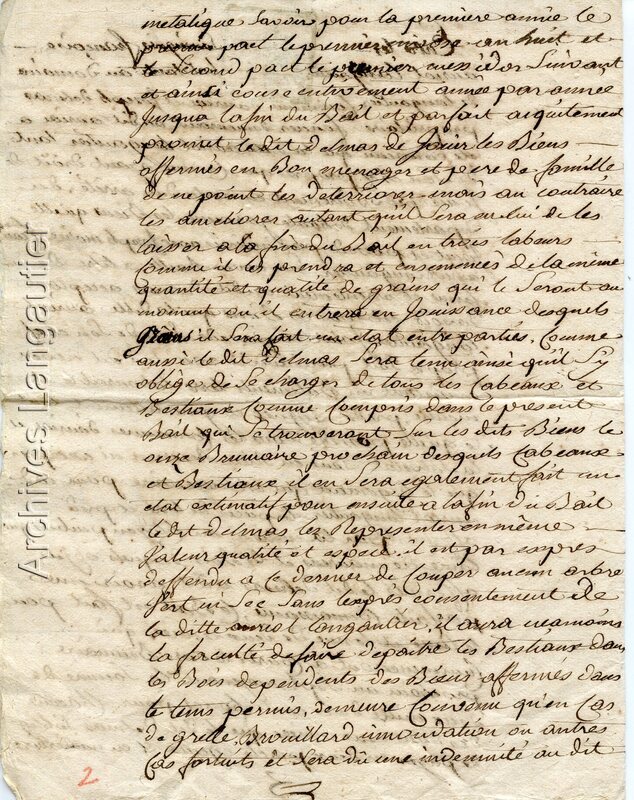 metalique Savoir pour la premiere année le
premier pact le premier nivose an huit et
le second pact le premier messidor Suivant
et ainsi consecutivement année par année
Jusqua la fin du Bail et parfait aquitement
promet le dit delmas de Jouir les Biens
affermés en Bon menager et pere de famille
de ne point les deteriorer mais au contraire
les ameliorer autant quil Sera en lui de les
laisser a la fin du Bail en trois labeurs
Comme il les prendra et ensemencés de la même
quantité et qualité de grains qui le Seront au
moment ou il entrera en Jouissance desquels
grains il Sera fait un etat entre parties, Comme
aussi le dit delmas Sera tenu ainsi quil Sy
oblige de Se charger de tous les Cabeaux et
Bestiaux Comme Compris dans le present
Bail qui Se trouveront Sur les dits Biens le
onze Brumaire prochain desquels Cabeaux
et Bestiaux il en Sera egalement fait un
etat estimatif pour ensuite a la fin du Bail
le dit delmas les Representer en même
Valeur qualité et espece. il est par exprès
deffendu a ce dernier de Couper aucun arbre
Vert ni Sec Sans l'exprés consentement de
la ditte auriol langautier, il aura neanmoins
la faculté de faire depaitre les Bestiaux dans
les Bois dependents des Biens affermés dans
le tems permis, demeure Convenu qu'en Cas
de grelle, Brouillard innondation ou autres
Cas fortuits et Sera du une indemnité au dit
2
Archives Langautier